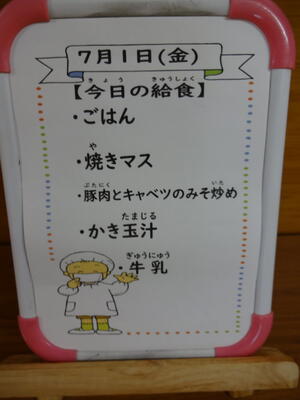 7月1日(金)
【今日の給食】
・ごはん
・焼きマス
・豚肉とキャベツのみそ炒め
・かき玉汁
・牛乳